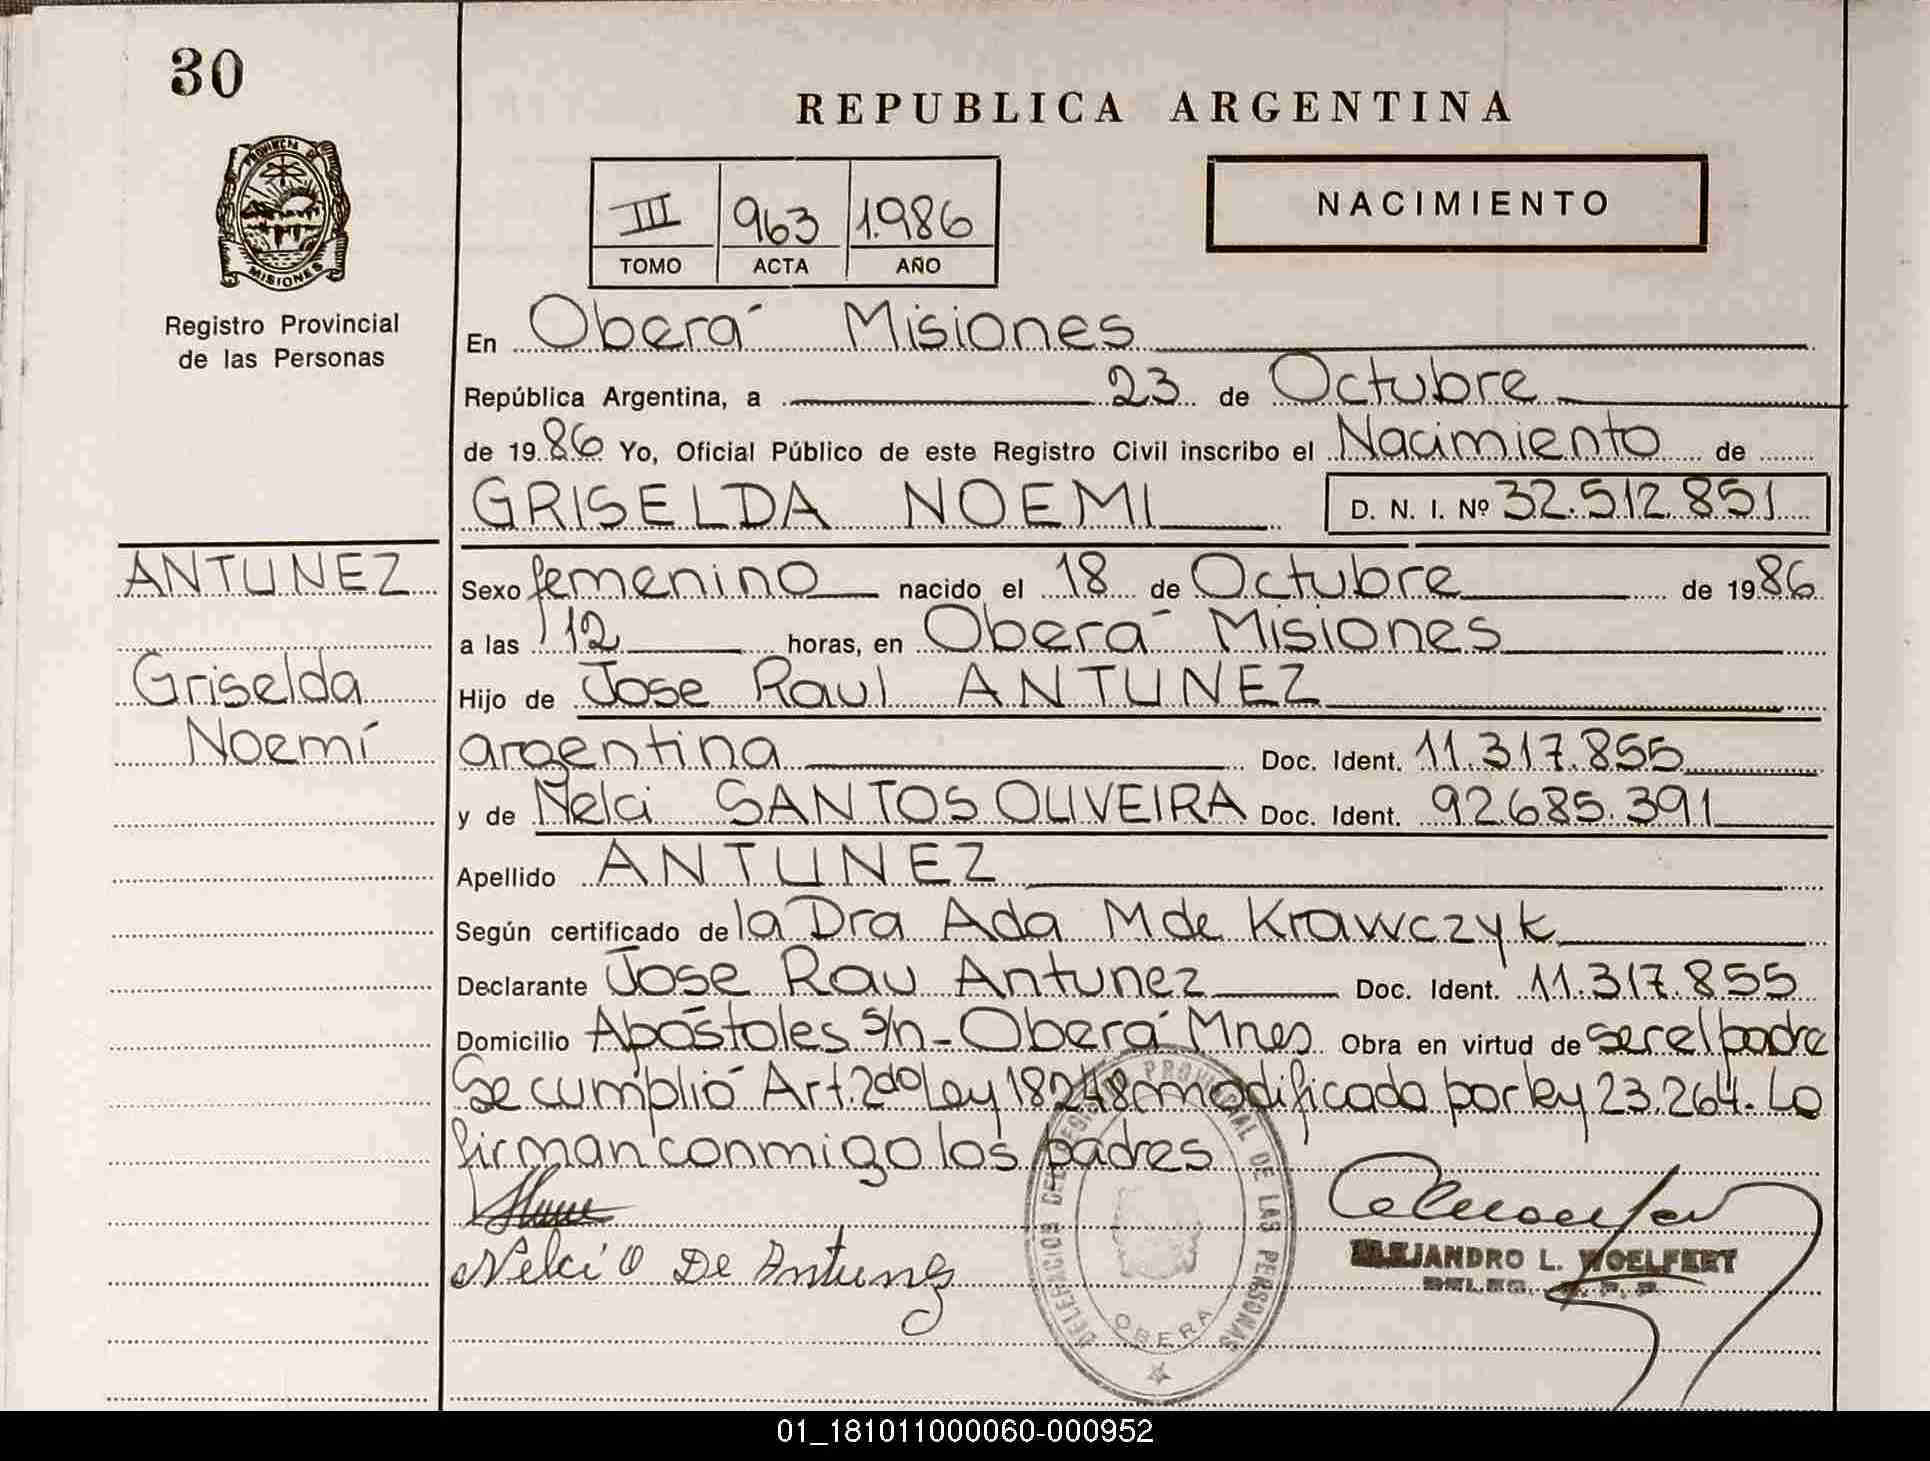 30
REPUBLICA ARGENTINA
PROVINCIA DE
MISIONES
Registro Provincial
de las Personas
III 963 1.986
TOMO ACTA AÑO
NACIMIENTO
En Oberá Misiones
República Argentina, a 23 de Octubre
de 1986 Yo, Oficial Público de este Registro Civil inscribo el Nacimiento de
GRISELDA NOEMI D. N. I. Nº 32.512.851
ANTUNEZ
Griselda
Noemí
Sexo femenino nacido el 18 de Octubre de 1986
a las 12 horas, en Oberá Misiones
Hijo de Jose Raul ANTUNEZ
argentina Doc. Ident. 11.317.855
y de Nelci SANTOS OLIVEIRA Doc. Ident. 92.685.391
Apellido ANTUNEZ
Según certificado de la Dra Ada M de Krawczyk
Declarante Jose Rau Antunez Doc. Ident. 11.317.855
Domicilio Apóstoles s/n - Oberá Mnes Obra en virtud de ser el padre
Se cumplió Art. 2do Ley 18248 modificada por ley 23.264. Lo
firman conmigo los padres
Nelci O De Antunez
DELEGACION DEL REGISTRO PROVINCIAL DE LAS PERSONAS
OBERA
ALEJANDRO L. WOELFERT
DELEG. R. P. P.
01_181011000060-000952